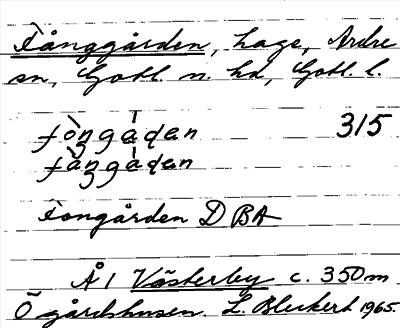 Fånggården, hage, Ardre
sn, Gotl. n. hd, Gotl. l.
fòŋgādən 315
fàŋgādən
Fongården DBA
ÅI Västerby c. 350m
Ö gårdshusen. L. Bleckert 1965.